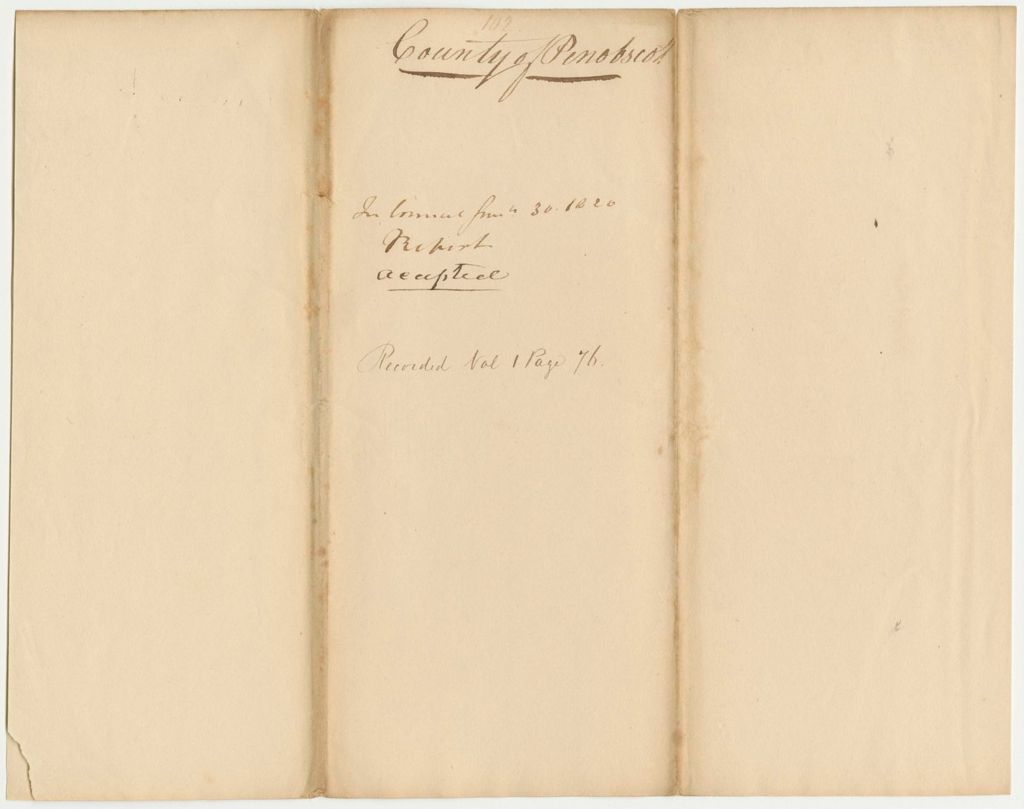 102
County of Penobscot
In Council June 30. 1820
Report
accepted
Recorded Vol 1 Page 76.